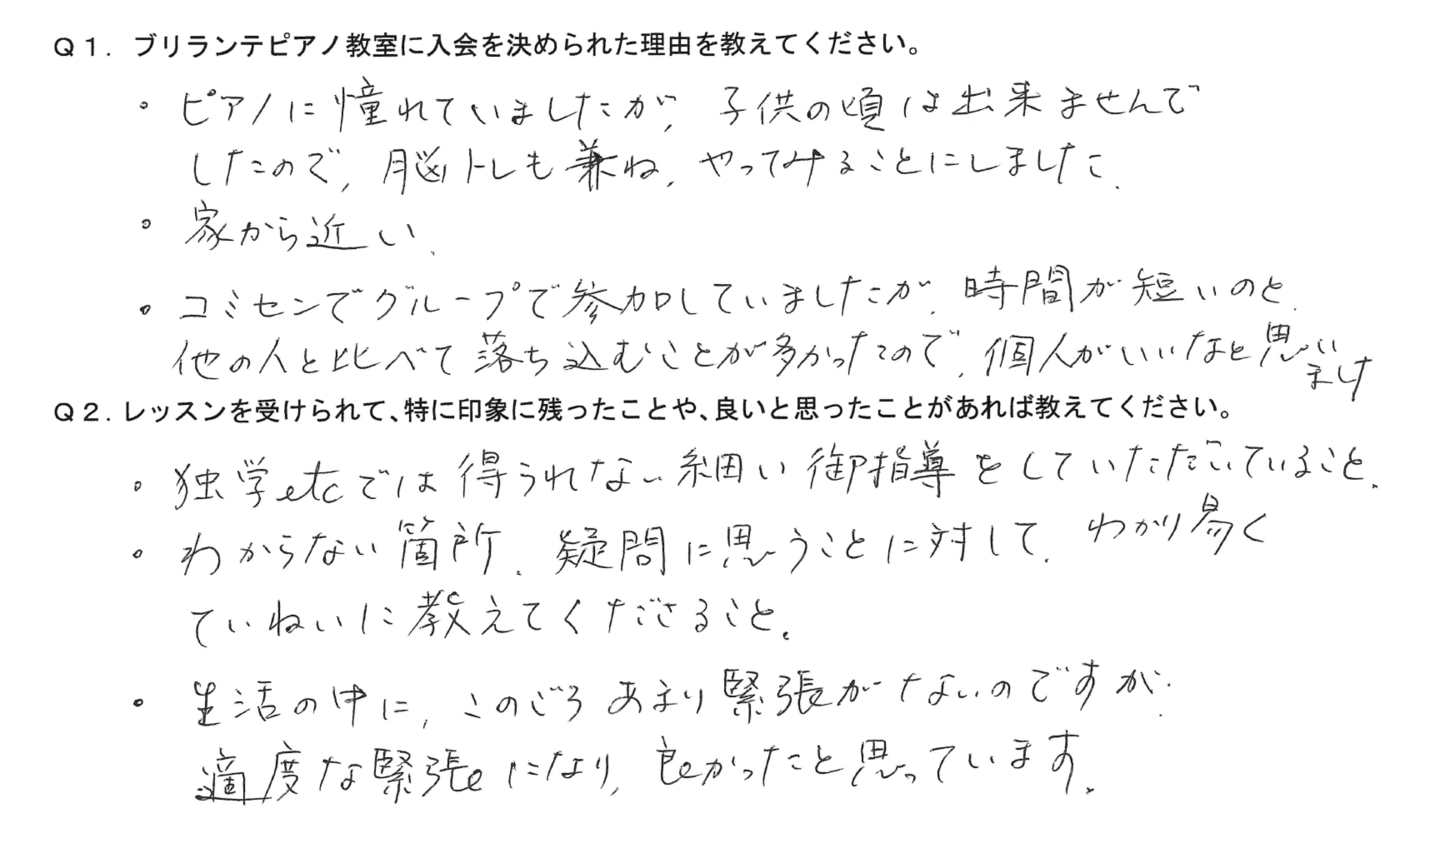 Q1. ブリランテピアノ教室に入会を決められた理由を教えてください。
・ピアノに憧れていましたが、子供の頃は出来ませんで
したので、脳トレも兼ね、やってみることにしました。
・家から近い、
・コミセンでグループで参加していましたが、時間が短いのと、
他の人と比べて落ち込むことが多かったので、個人がいいなと思い
ました
Q2. レッスンを受けられて、特に印象に残ったことや、良いと思ったことがあれば教えてください。
・独学etcでは得られない細い御指導をしていただいていること。
・わからない箇所、疑問に思うことに対して、わかり易く
ていねいに教えてくださること。
・生活の中に、このごろあまり緊張がないのですが、
適度な緊張になり、良かったと思っています。